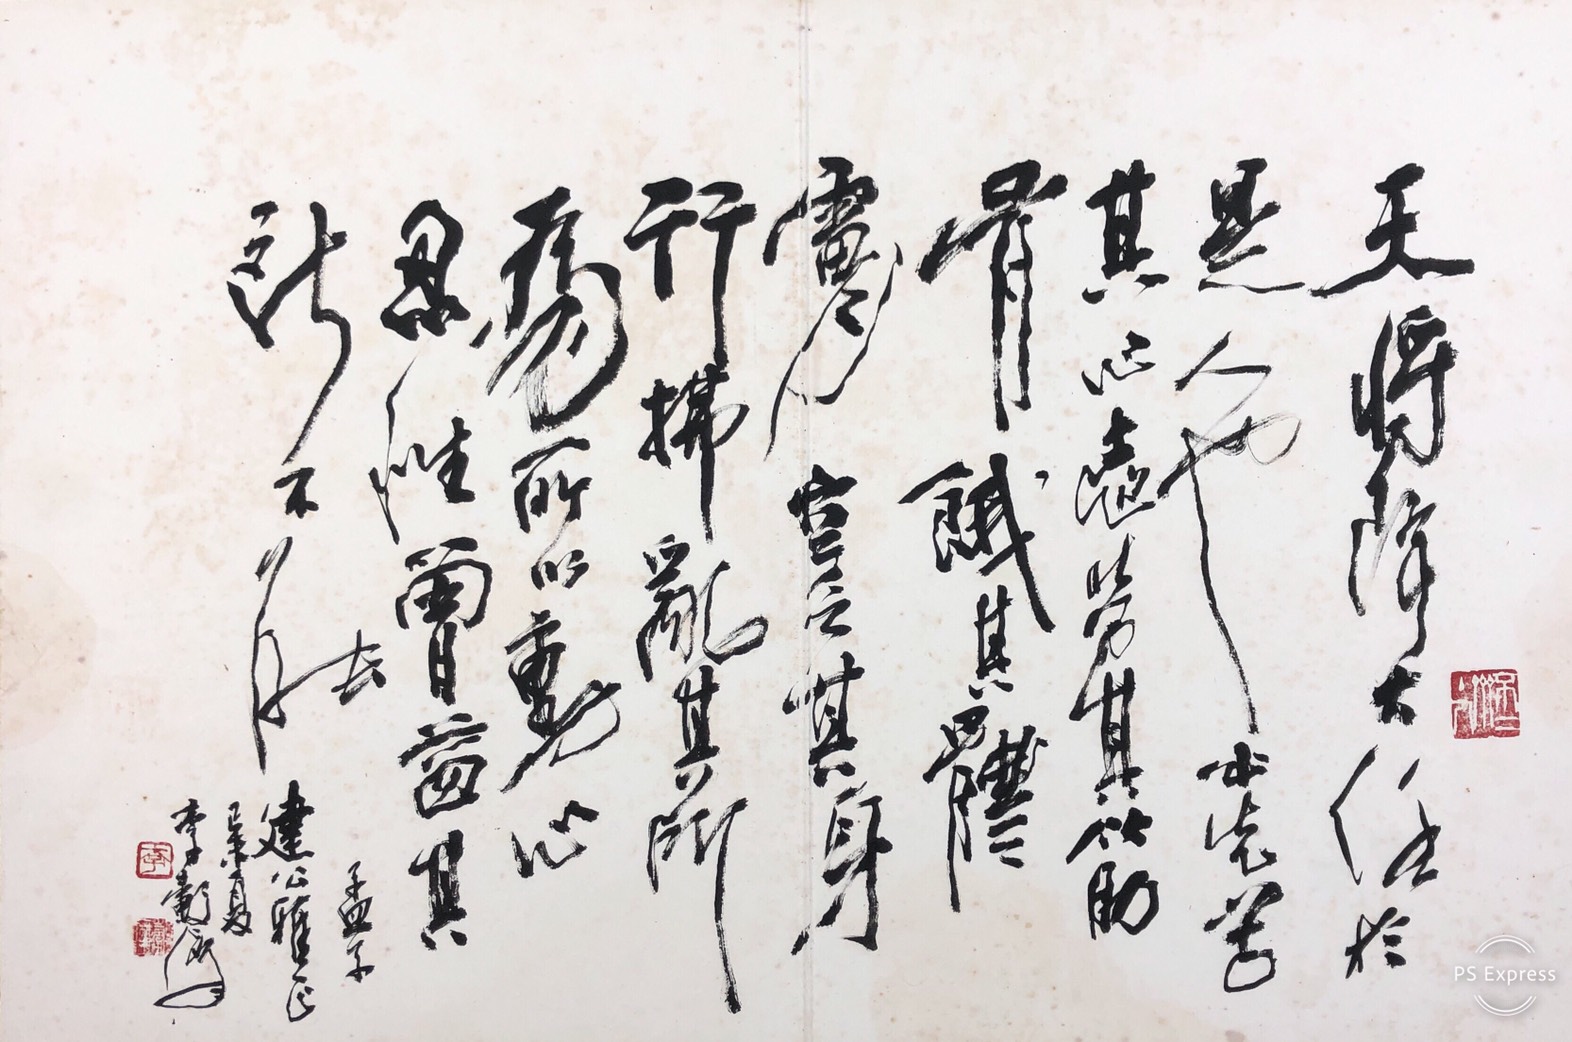 天將降大任於
是人也必先苦
其心志勞其筋
骨餓其體
膚空乏其身
行拂亂其所
為所以動心
忍性曾益其
所不能
孟子
建公雅正
夏
李
PS Express